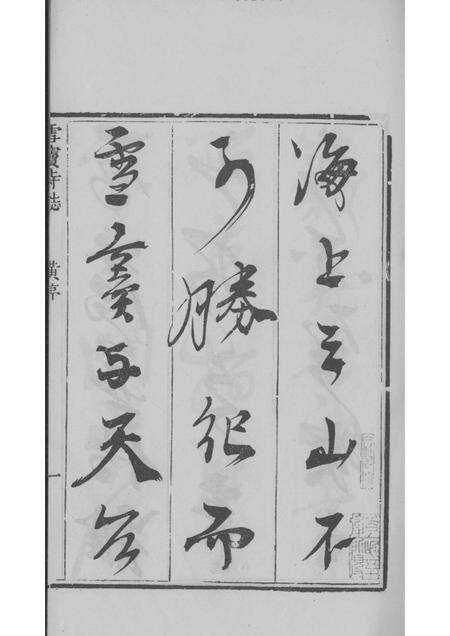 海上之山不
可勝紀而
雪竇与天台
雪竇寺誌
黃序
一